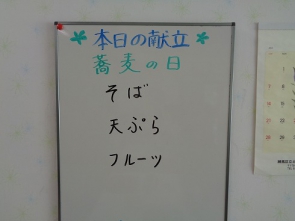 本日の献立
蕎麦の日
そば
天ぷら
フルーツ